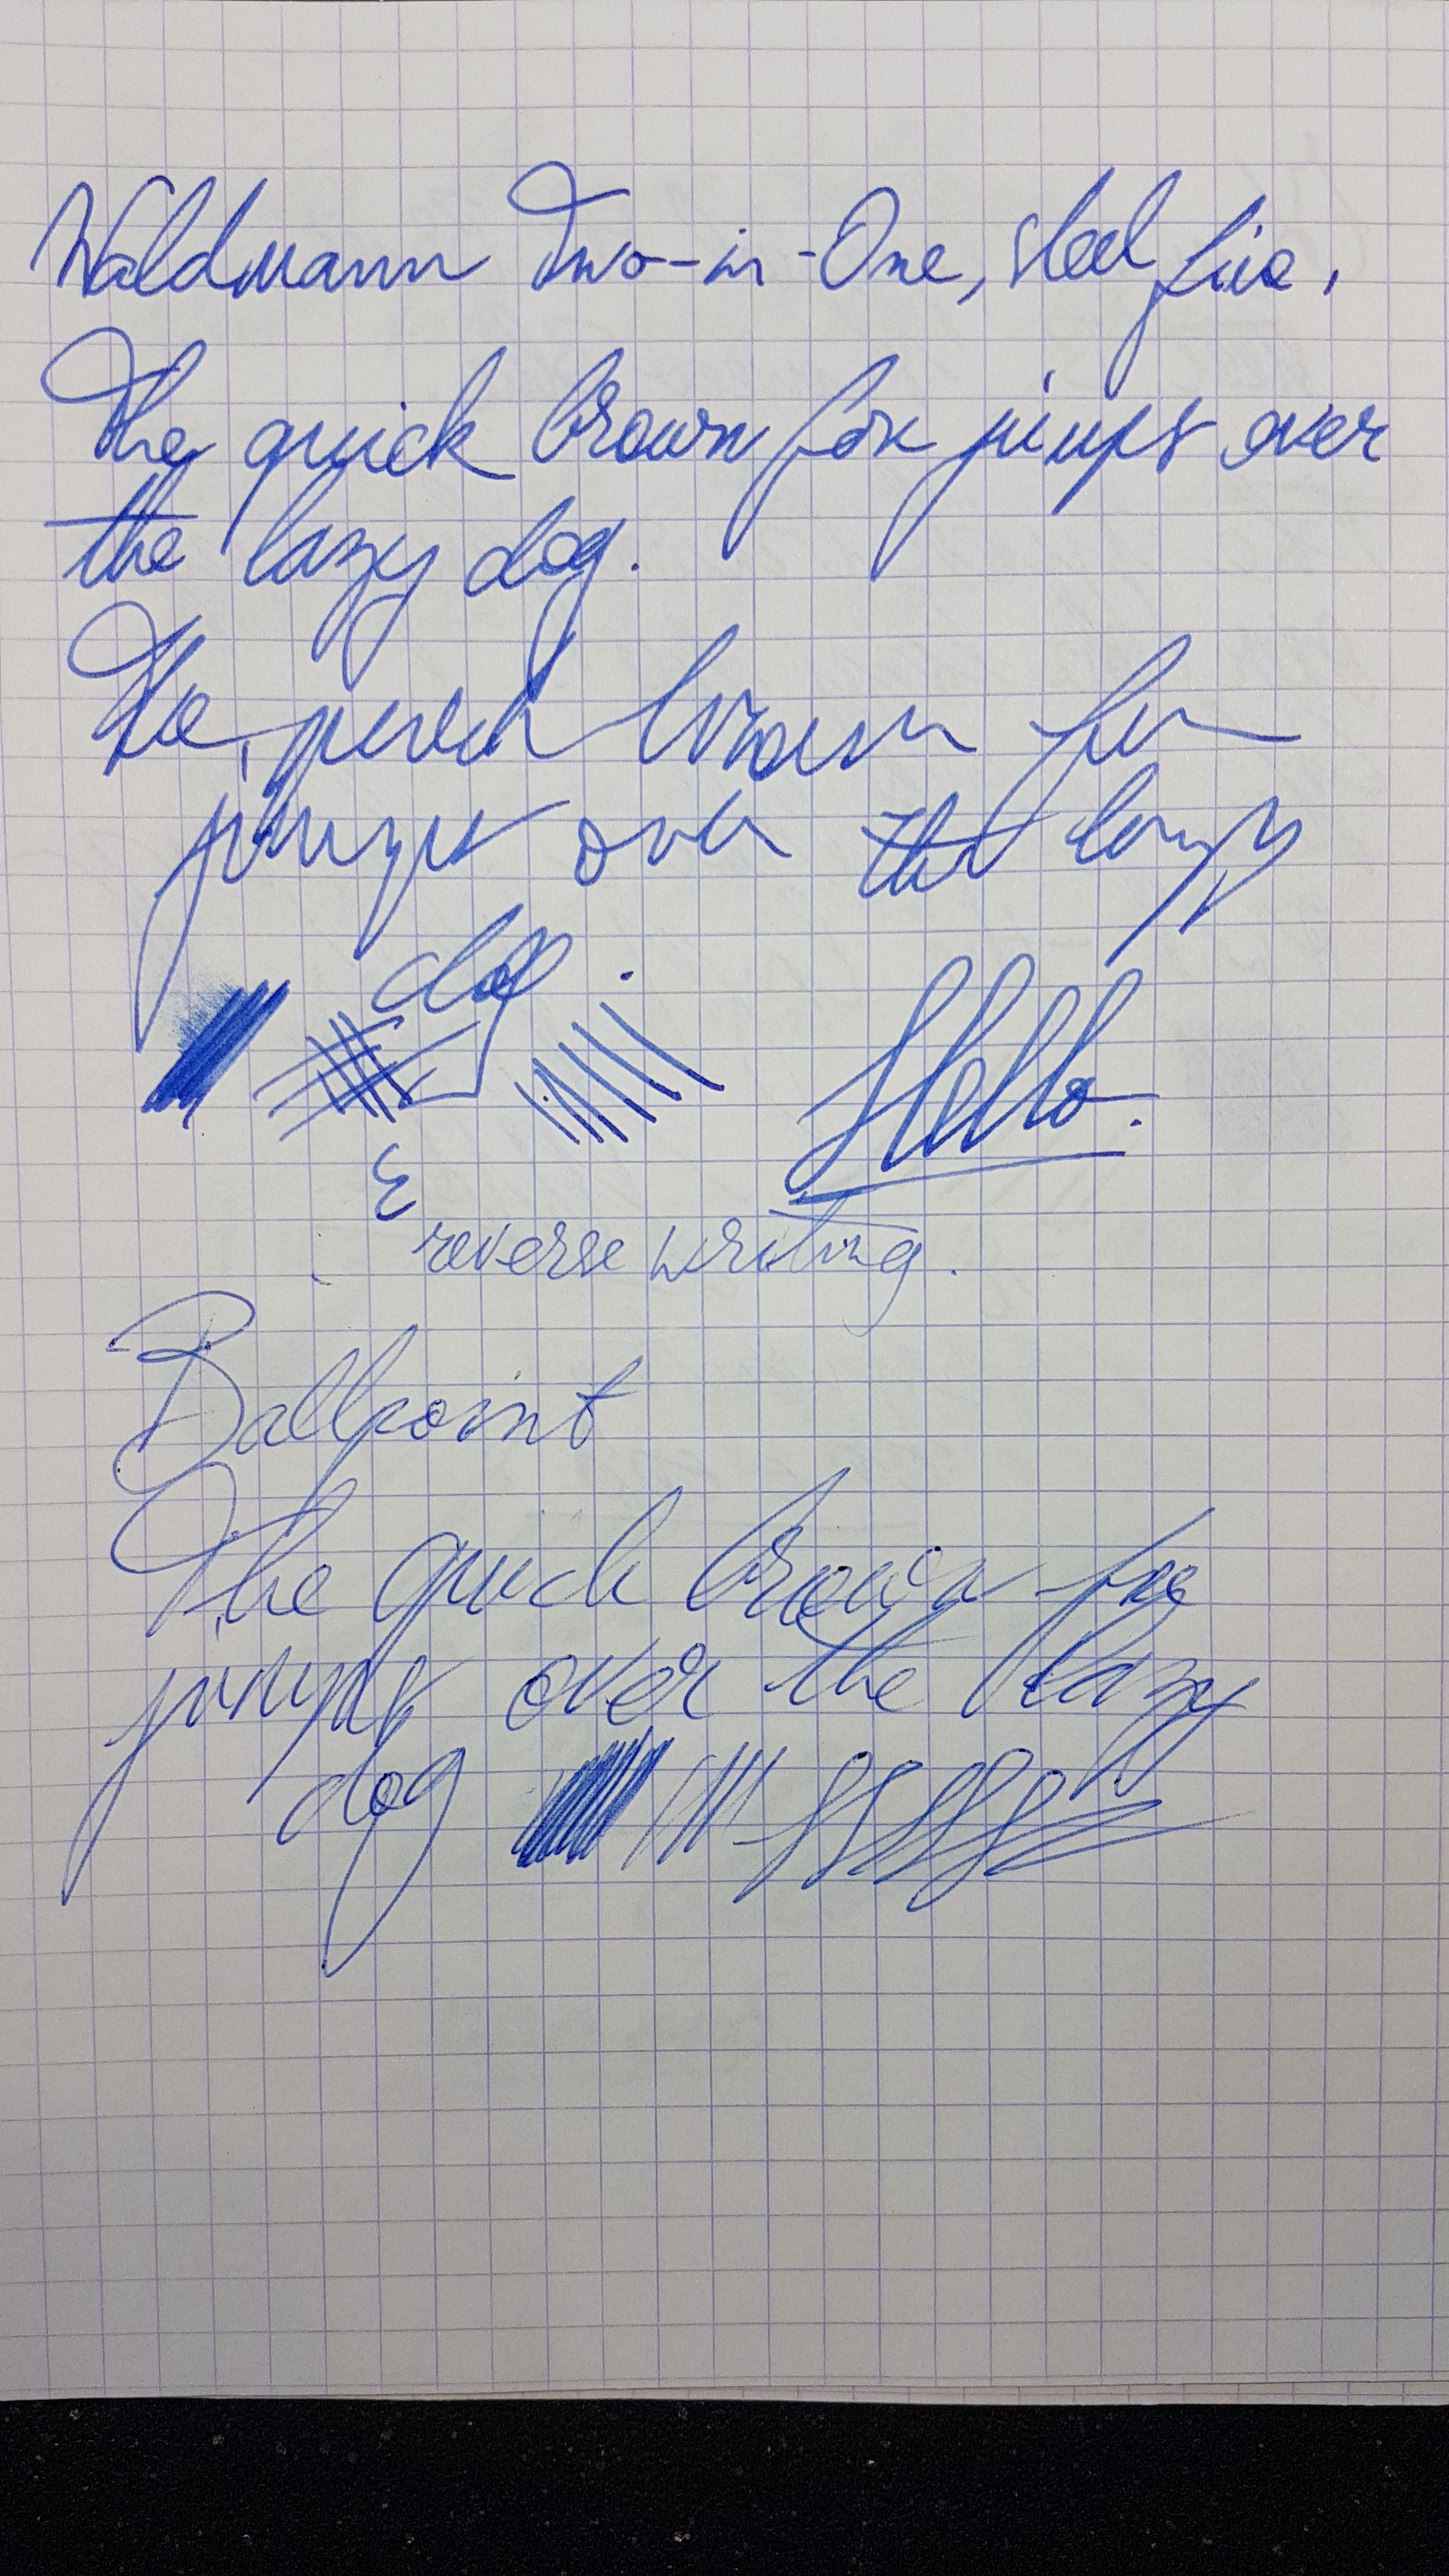 Waldmann Two-in-One, steel fine.
The quick brown fox jumps over
the lazy dog.
The quick brown fox
jumps over the lazy
dog.
Hello.
reverse writing.
Ballpoint
The quick brown fox
jumps over the lazy
dog